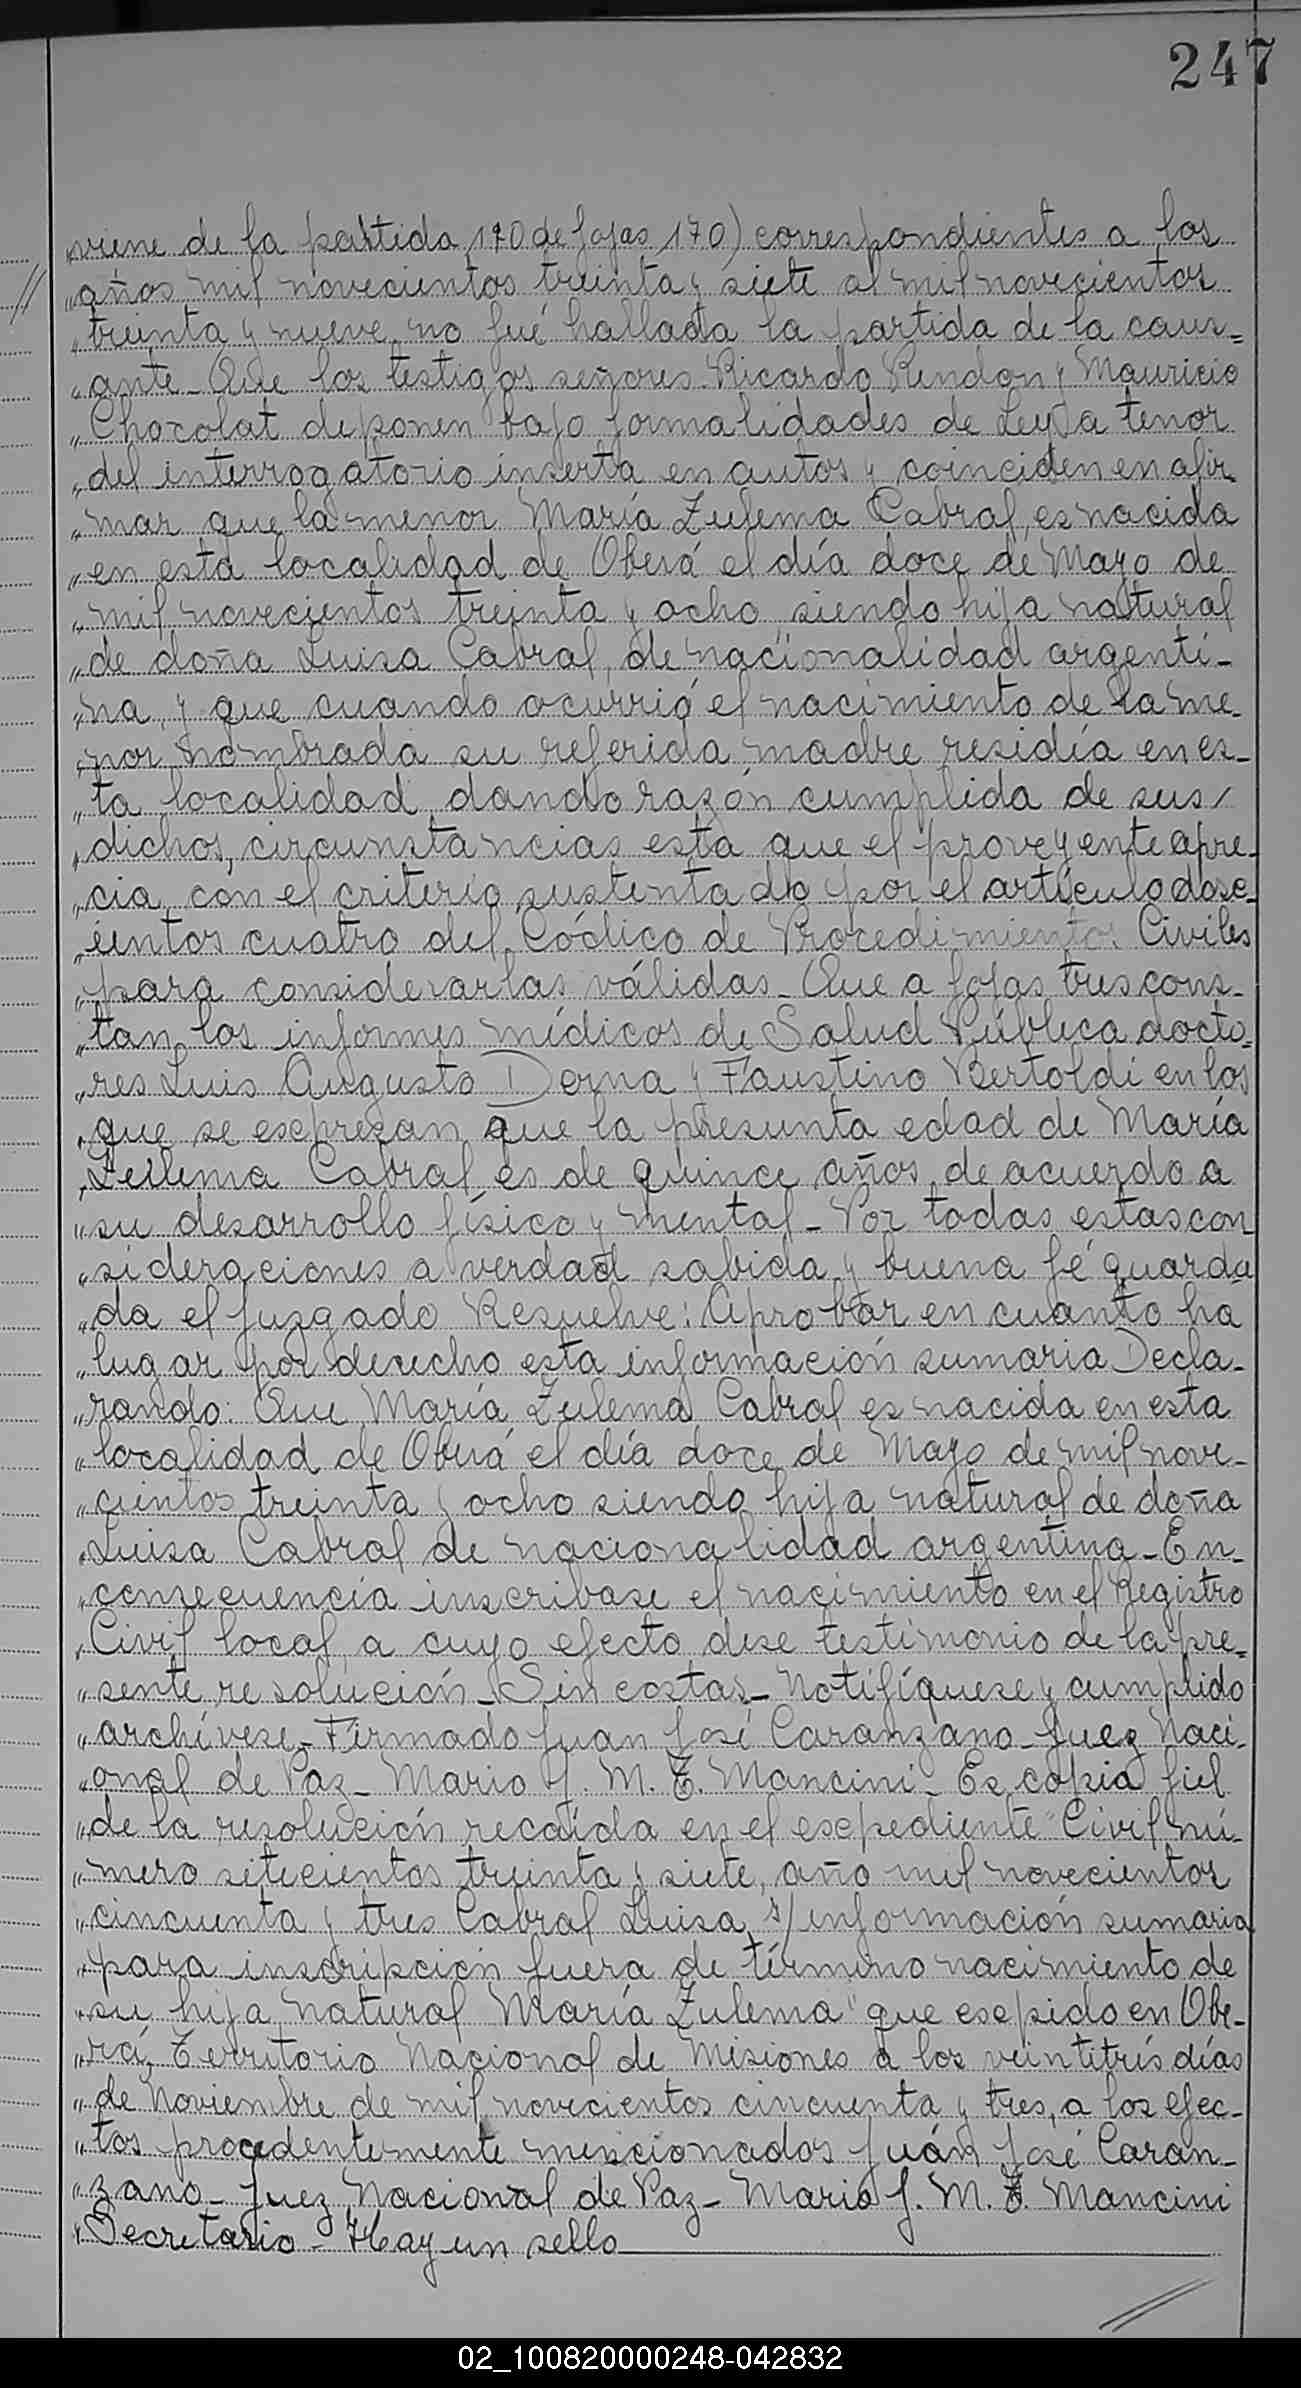 247
„viene de la partida 170 de fojas 170) correspondientes a los
„años mil novecientos treinta y siete al mil novecientos
„treinta y nueve no fué hallada la partida de la caus=
„ante_Que los testigos señores Ricardo Rendon y Mauricio
„Chocolat deponen bajo formalidades de Ley a tenor
„del interrogatorio inserta en autos y coinciden en afir
„mar que la menor María Zulema Cabral, es nacida
„en esta localidad de Oberá el día doce de Mayo de
„mil novecientos treinta y ocho siendo hija natural
„de doña Luisa Cabral, de nacionalidad argenti_
„na, y que cuando ocurrió el nacimiento de la me_
„nor nombrada su referida madre residía en es_
„ta localidad dando razón cumplida de sus/
„dichos, circunstancias esta que el proveyente apre_
„cia con el criterio sustentado por el artículo dosc_
„ientos cuatro del Códico de Procedimientos Civiles
„para considerarlas válidas_Que a fojas tres cons_
„tan los informes médicos de Salud Pública docto=
„res Luis Augusto Derna y Faustino Bertoldi en los
„que se escpresan que la presunta edad de María
„Zulema Cabral es de quince años de acuerdo a
„su desarrollo físico y mental_Por todas estas con
„sideraciones a verdad sabida y buena fé guarda
„da el Juzgado Resuelve: Aprobar en cuanto ha
„lugar por derecho esta información sumaria Decla_
„rando: Que María Zulema Cabral es nacida en esta
„localidad de Oberá el día doce de Mayo de mil nove_
„cientos treinta y ocho siendo hija natural de doña
„Luisa Cabral de nacionalidad argentina_En_
„consecuencia inscribase el nacimiento en el Registro
„Civil local a cuyo efecto dese testimonio de la pre=
„sente resolución_Sin costas_Notifíquese y cumplido
„archívese_Firmado Juan José Caranzano_Juez Naci_
„onal de Paz_Mario J. M. T. Mancini_Es copia fiel
„de la resolución recaída en el escpediente "Civil nú_
„mero setecientos treinta y siete, año mil novecientos
„cincuenta y tres Cabral Luisa s/información sumaria
„para inscripción fuera de término nacimiento de
„su hija natural María Zulema" que escpido en Obe_
„rá, Territorio Nacional de Misiones a los veintitrés días
„de Noviembre de mil novecientos cincuenta y tres, a los efec_
„tos procedentemente mencionados Juán José Caran_
„zano_Juez Nacional de Paz_Mario J. M. T. Mancini
„Secretario_Hay un sello
02_100820000248-042832